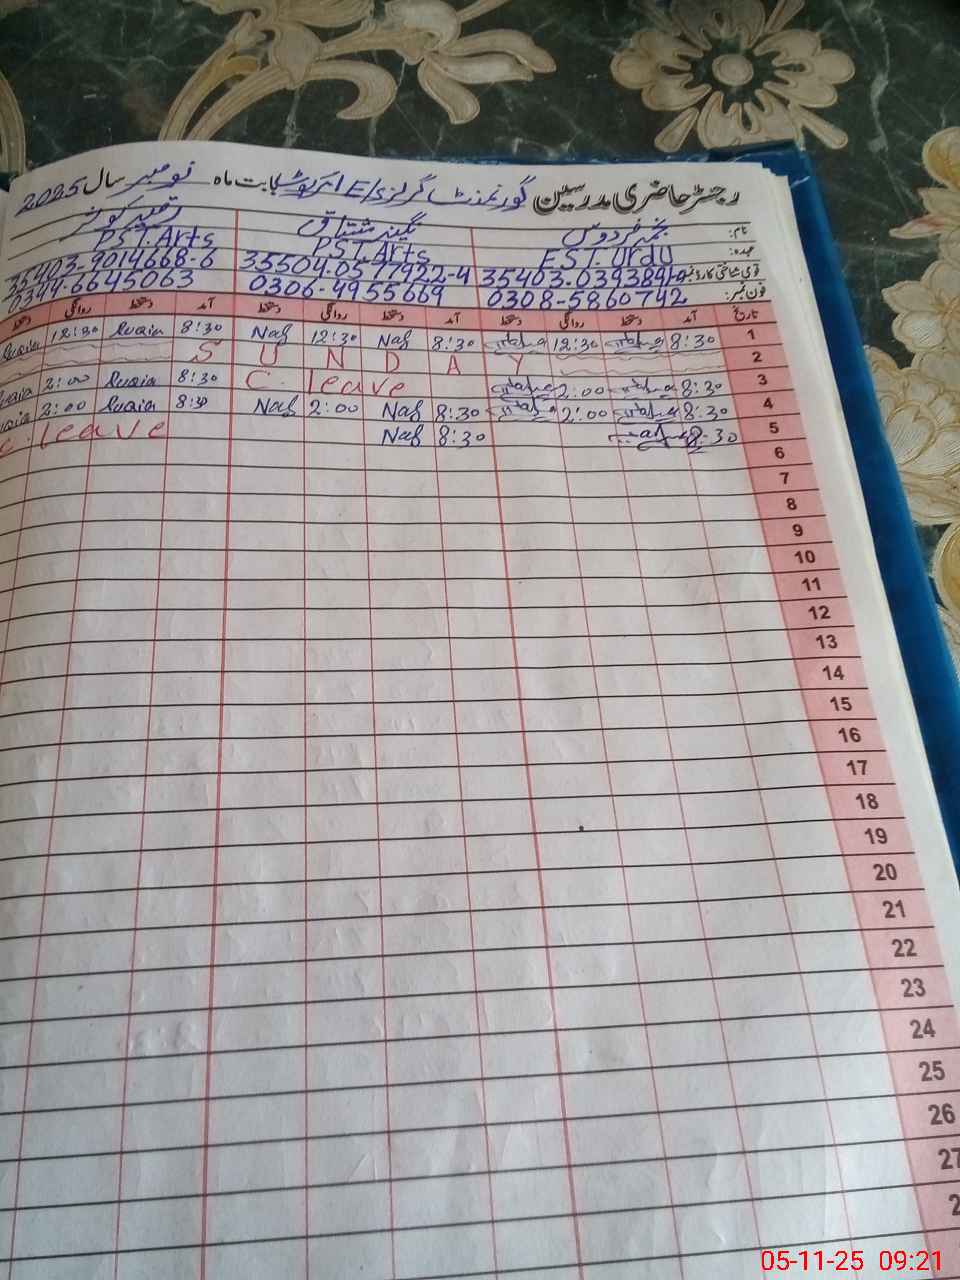 رجسٹر حاضری مدرسین گورنمنٹ گرلز E/S بابت ماہ نومبر سال 2025
نام: نجمہ فردوس نگینہ مشتاق کوثر
عہدہ: EST. Urdu PST. Arts PST. Arts
قومی شناختی کارڈ نمبر: 35504-0577922-4 35403-9014668-6
فون نمبر: 0308-5860742 0306-4955669 0344-6645063
تاریخ آمد دستخط روانگی دستخط آمد دستخط روانگی دستخط آمد دستخط روانگی دستخط
1 8:30 12:30 8:30 Naf 12:30 Naf 8:30 12:30
2 S U N D A Y
3 8:30 2:00 C. leave 8:30 2:00
4 8:30 2:00 8:30 Naf 2:00 Naf 8:30 2:00
5 8:30 8:30 Naf C. leave
6
7
8
9
10
11
12
13
14
15
16
17
18
19
20
21
22
23
24
25
26
27
05-11-25 09:21